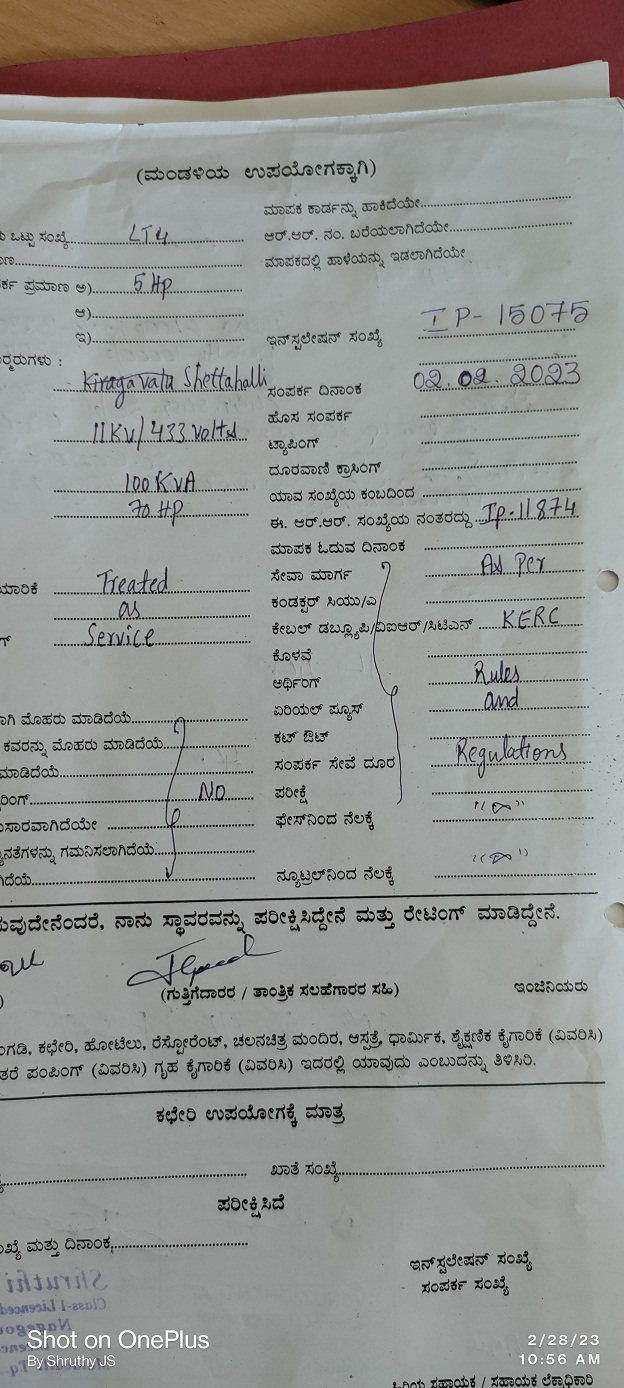 (ಮಂಡಳಿಯ ಉಪಯೋಗಕ್ಕಾಗಿ)
ಮಾಪಕ ಕಾರ್ಡನ್ನು ಹಾಕಿದೆಯೇ
ಒಟ್ಟು ಸಂಖ್ಯೆ LT4 ಆರ್.ಆರ್. ನಂ. ಬರೆಯಲಾಗಿದೆಯೇ
ಮಾಪಕದಲ್ಲಿ ಹಾಳೆಯನ್ನು ಇಡಲಾಗಿದೆಯೇ
ಪ್ರಮಾಣ ಅ) 5 HP
ಆ)
ಇ) ಇನ್‌ಸ್ಟಲೇಷನ್ ಸಂಖ್ಯೆ IP- 15075
Kiragavalu Shettahalli ಸಂಪರ್ಕ ದಿನಾಂಕ 02.02.2023
ಹೊಸ ಸಂಪರ್ಕ
11KV/433 volts ಟ್ಯಾಪಿಂಗ್
ದೂರವಾಣಿ ಕ್ರಾಸಿಂಗ್
100 KVA ಯಾವ ಸಂಖ್ಯೆಯ ಕಂಬದಿಂದ
70 HP ಈ. ಆರ್.ಆರ್. ಸಂಖ್ಯೆಯ ನಂತರದ್ದು Ip.11874
ಮಾಪಕ ಓದುವ ದಿನಾಂಕ
Treated ಸೇವಾ ಮಾರ್ಗ As Per
as ಕಂಡಕ್ಟರ್ ಸಿಯು/ಎ
Service ಕೇಬಲ್ ಡಬ್ಲ್ಯೂಪಿ/ವಿಐಆರ್/ಸಿಟಿಎಸ್ KERC
ಕೊಳವೆ
ಅರ್ಥಿಂಗ್ Rules
ಮೊಹರು ಮಾಡಿದೆಯೆ ಏರಿಯಲ್ ಫ್ಯೂಸ್ and
ಕವರನ್ನು ಮೊಹರು ಮಾಡಿದೆಯೆ ಕಟ್ ಔಟ್
ಮಾಡಿದೆಯೆ ಸಂಪರ್ಕ ಸೇವೆ ದೂರ Regulations
No ಪರೀಕ್ಷೆ
ಫೇಸ್‌ನಿಂದ ನೆಲಕ್ಕೆ "∞"
ಗಮನಿಸಲಾಗಿದೆಯೆ
ನ್ಯೂಟ್ರಲ್‌ನಿಂದ ನೆಲಕ್ಕೆ "∞"
ನಾನು ಸ್ಥಾವರವನ್ನು ಪರೀಕ್ಷಿಸಿದ್ದೇನೆ ಮತ್ತು ರೇಟಿಂಗ್ ಮಾಡಿದ್ದೇನೆ.
(ಗುತ್ತಿಗೆದಾರರ / ತಾಂತ್ರಿಕ ಸಲಹೆಗಾರರ ಸಹಿ) ಇಂಜಿನಿಯರು
ಕಛೇರಿ, ಹೋಟೆಲು, ರೆಸ್ಟೋರೆಂಟ್, ಚಲನಚಿತ್ರ ಮಂದಿರ, ಆಸ್ಪತ್ರೆ, ಧಾರ್ಮಿಕ, ಶೈಕ್ಷಣಿಕ ಕೈಗಾರಿಕೆ (ವಿವರಿಸಿ)
ಪಂಪಿಂಗ್ (ವಿವರಿಸಿ) ಗೃಹ ಕೈಗಾರಿಕೆ (ವಿವರಿಸಿ) ಇದರಲ್ಲಿ ಯಾವುದು ಎಂಬುದನ್ನು ತಿಳಿಸಿರಿ.
ಕಛೇರಿ ಉಪಯೋಗಕ್ಕೆ ಮಾತ್ರ
ಖಾತೆ ಸಂಖ್ಯೆ
ಪರೀಕ್ಷಿಸಿದೆ
ಮತ್ತು ದಿನಾಂಕ
ಇನ್‌ಸ್ಟಲೇಷನ್ ಸಂಖ್ಯೆ
ಸಂಪರ್ಕ ಸಂಖ್ಯೆ
Shruthi
Class-I Licenced
Shot on OnePlus
By Shruthy JS
2/28/23
10:56 AM
ಹಿರಿಯ ಸಹಾಯಕ / ಸಹಾಯಕ ಲೆಕ್ಕಾಧಿಕಾರಿ